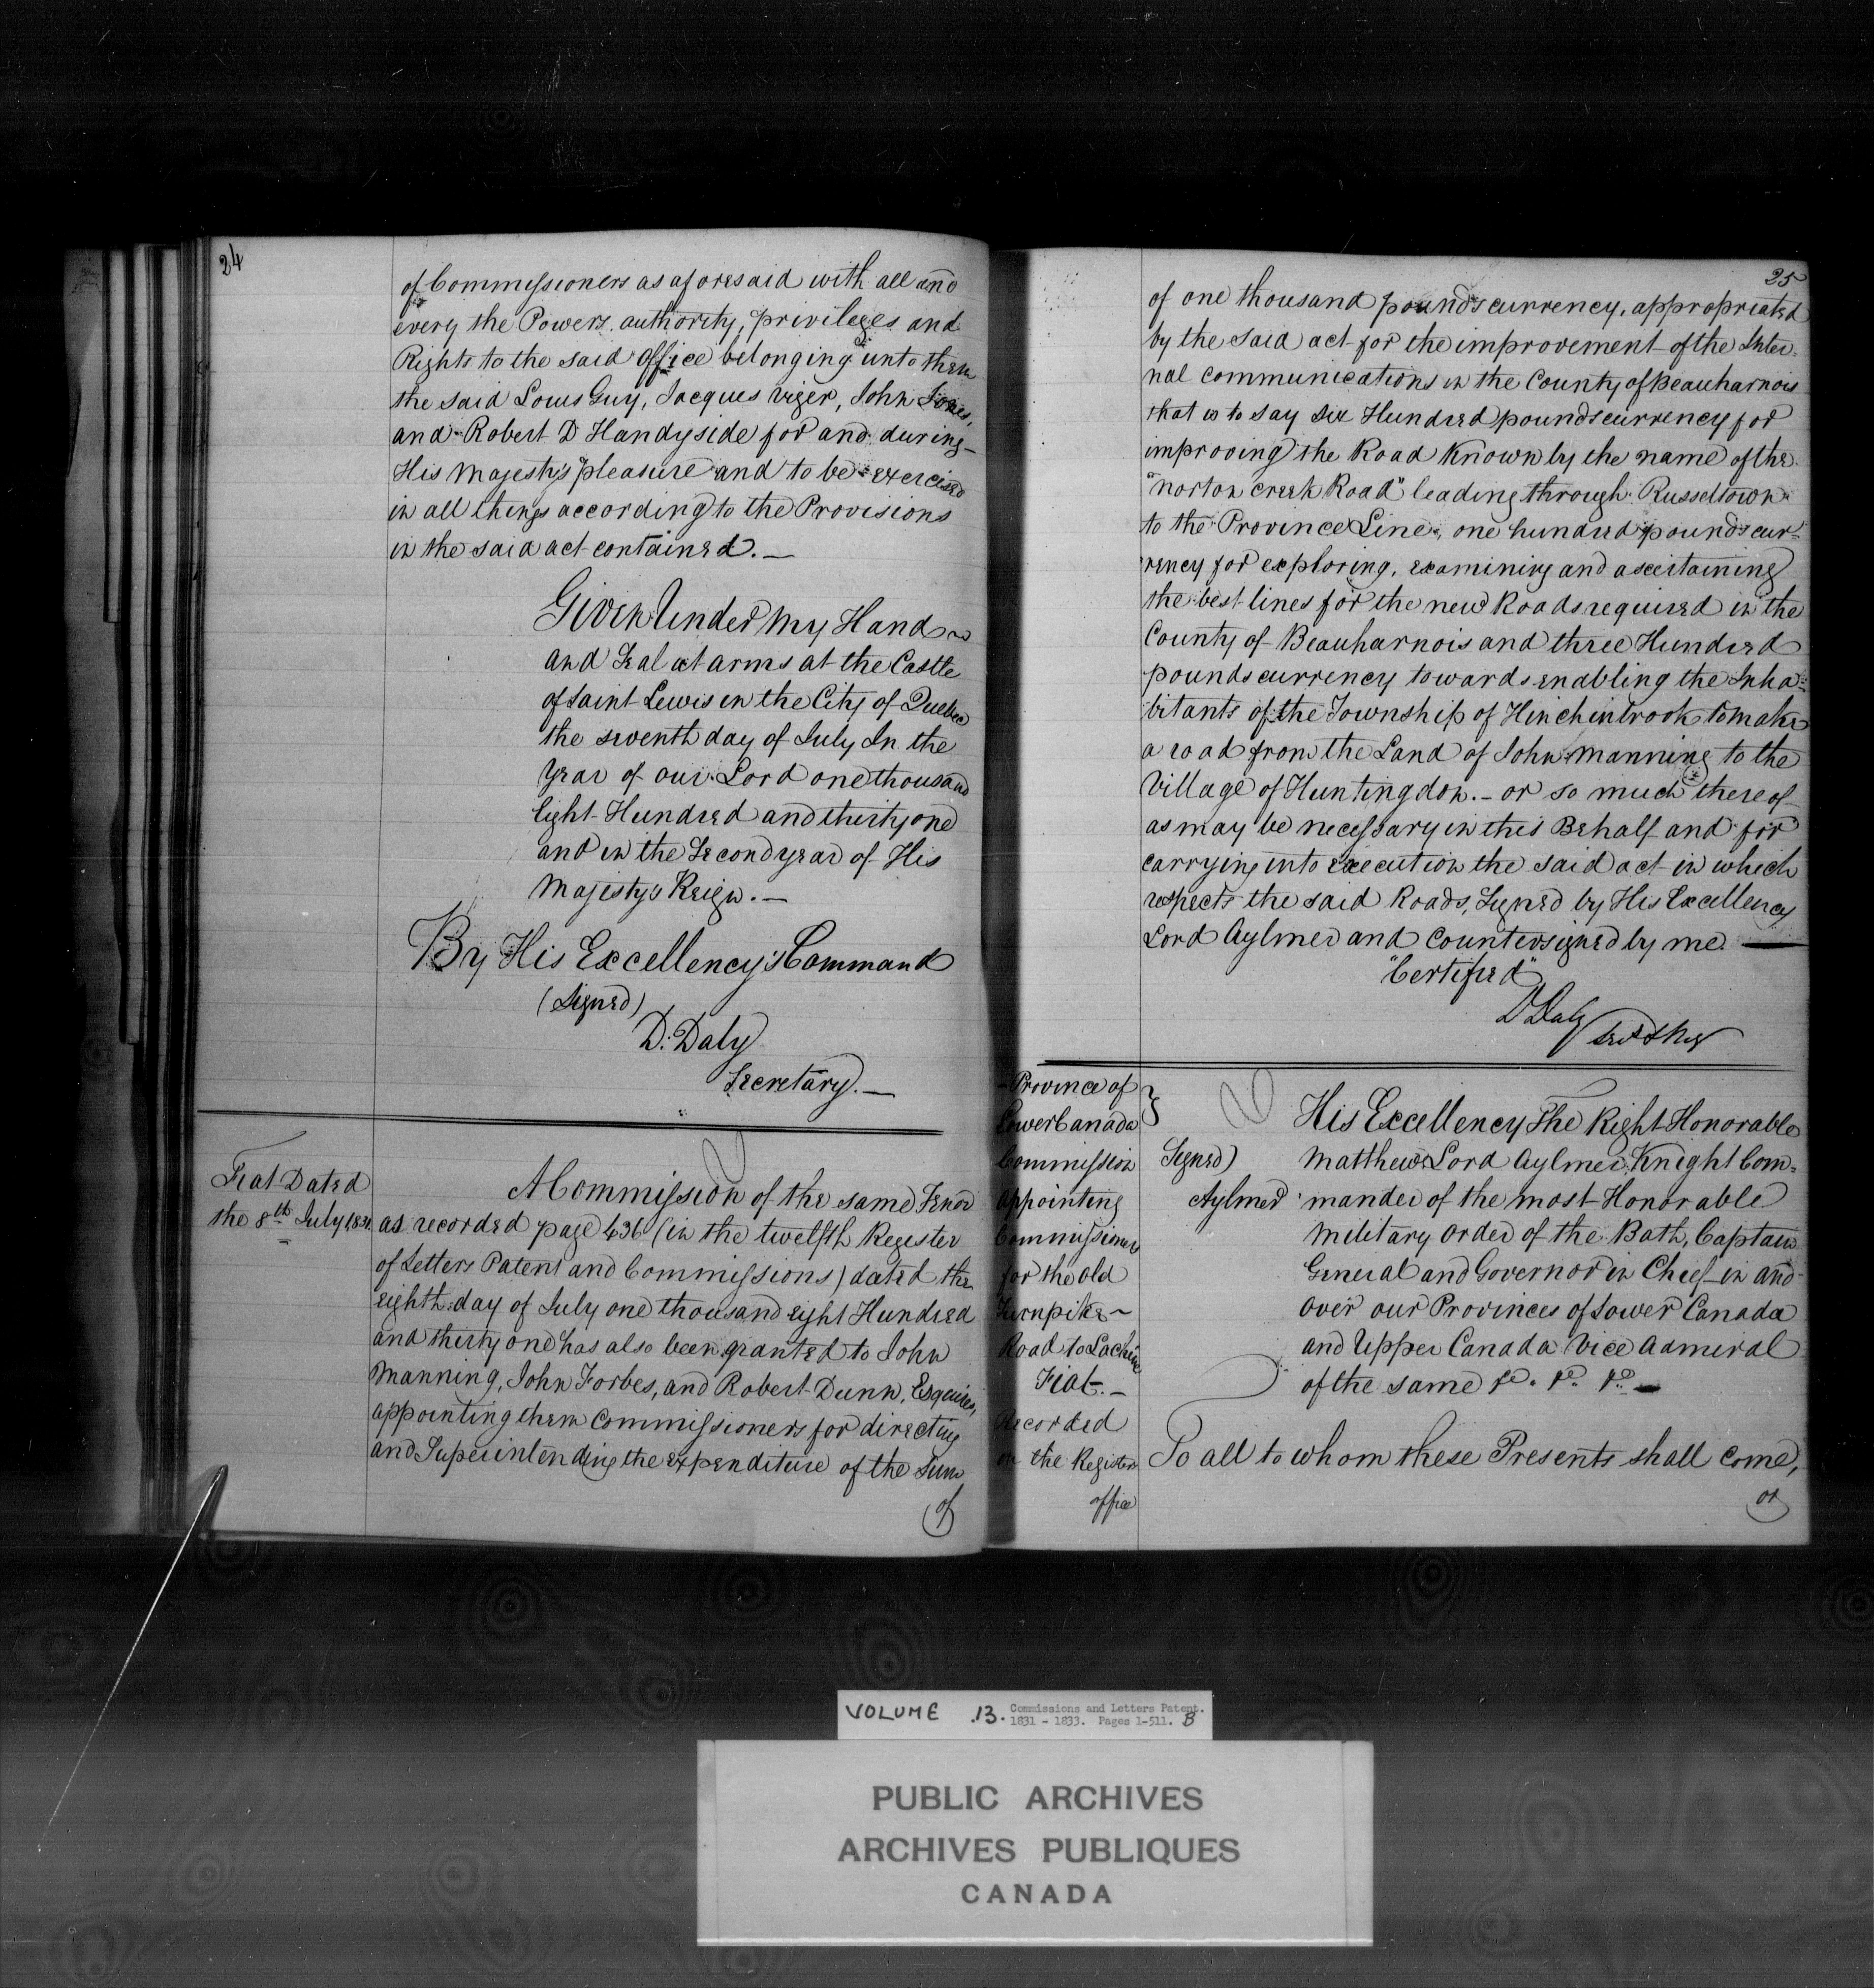 24
of Commissioners as aforesaid with all and
every the Powers, authority, privileges and
Rights to the said Office belonging unto them
the said Louis Guy, Jacques Viger, John Jones,
and Robert D Handyside for and during
His Majesty's pleasure and to be exercised
in all things according to the Provisions
in the said act contained. —
Given Under My Hand
and Seal at arms at the Castle
of Saint Lewis in the City of Quebec
the seventh day of July In the
Year of our Lord one thousand
Eight Hundred and thirty one
and in the Second year of His
Majesty's Reign. —
By His Excellency's Command
(Signed)
D. Daly
Secretary. —
Fiat Dated
the 8th July 1831.
A Commission of the same Tenor
as recorded page 436 (in the twelfth Register
of Letters Patent and Commissions) dated the
eighth day of July one thousand eight Hundred
and thirty one has also been granted to John
Manning, John Forbes, and Robert Dunn, Esquires,
appointing them Commissioners for directing
and Superintending the expenditure of the Sum
of
25
of one thousand pounds currency, appropriated
by the said act for the improvement of the Inter-
nal communications in the County of Beauharnois
that is to say Six Hundred pounds currency for
improving the Road Known by the name of the
"Norton Creek Road" leading through Russeltown
to the Province Line, one hundred pounds cur-
rency for exploring, examining and ascertaining
the best lines for the new Roads required in the
County of Beauharnois and three Hundred
pounds currency towards enabling the Inha-
bitants of the Township of Hinchinbrook to make
a road from the Land of John Manning to the
Village of Huntingdon. — or so much thereof
as may be necessary in this Behalf and for
carrying into execution the said act in which
respects the said Roads, Signed by His Excellency
Lord Aylmer and Countersigned by me. —
"Certified"
D Daly
Province of
Lower Canada
Commission
appointing
Commissioners
for the old
Turnpike
Road to Lachine
Fiat. —
Recorded
in the Registers
office
Signed)
Aylmer
His Excellency The Right Honorable
Matthew Lord Aylmer, Knight Com-
mander of the most Honorable
Military Order of the Bath, Captain
General and Governor in Chief in and
over our Provinces of Lower Canada
and Upper Canada Vice Admiral
of the same
To all to whom these Presents shall come,
or
VOLUME 13. Commissions and Letters Patent.
1831 - 1833. Pages 1-511. B
PUBLIC ARCHIVES
ARCHIVES PUBLIQUES
CANADA